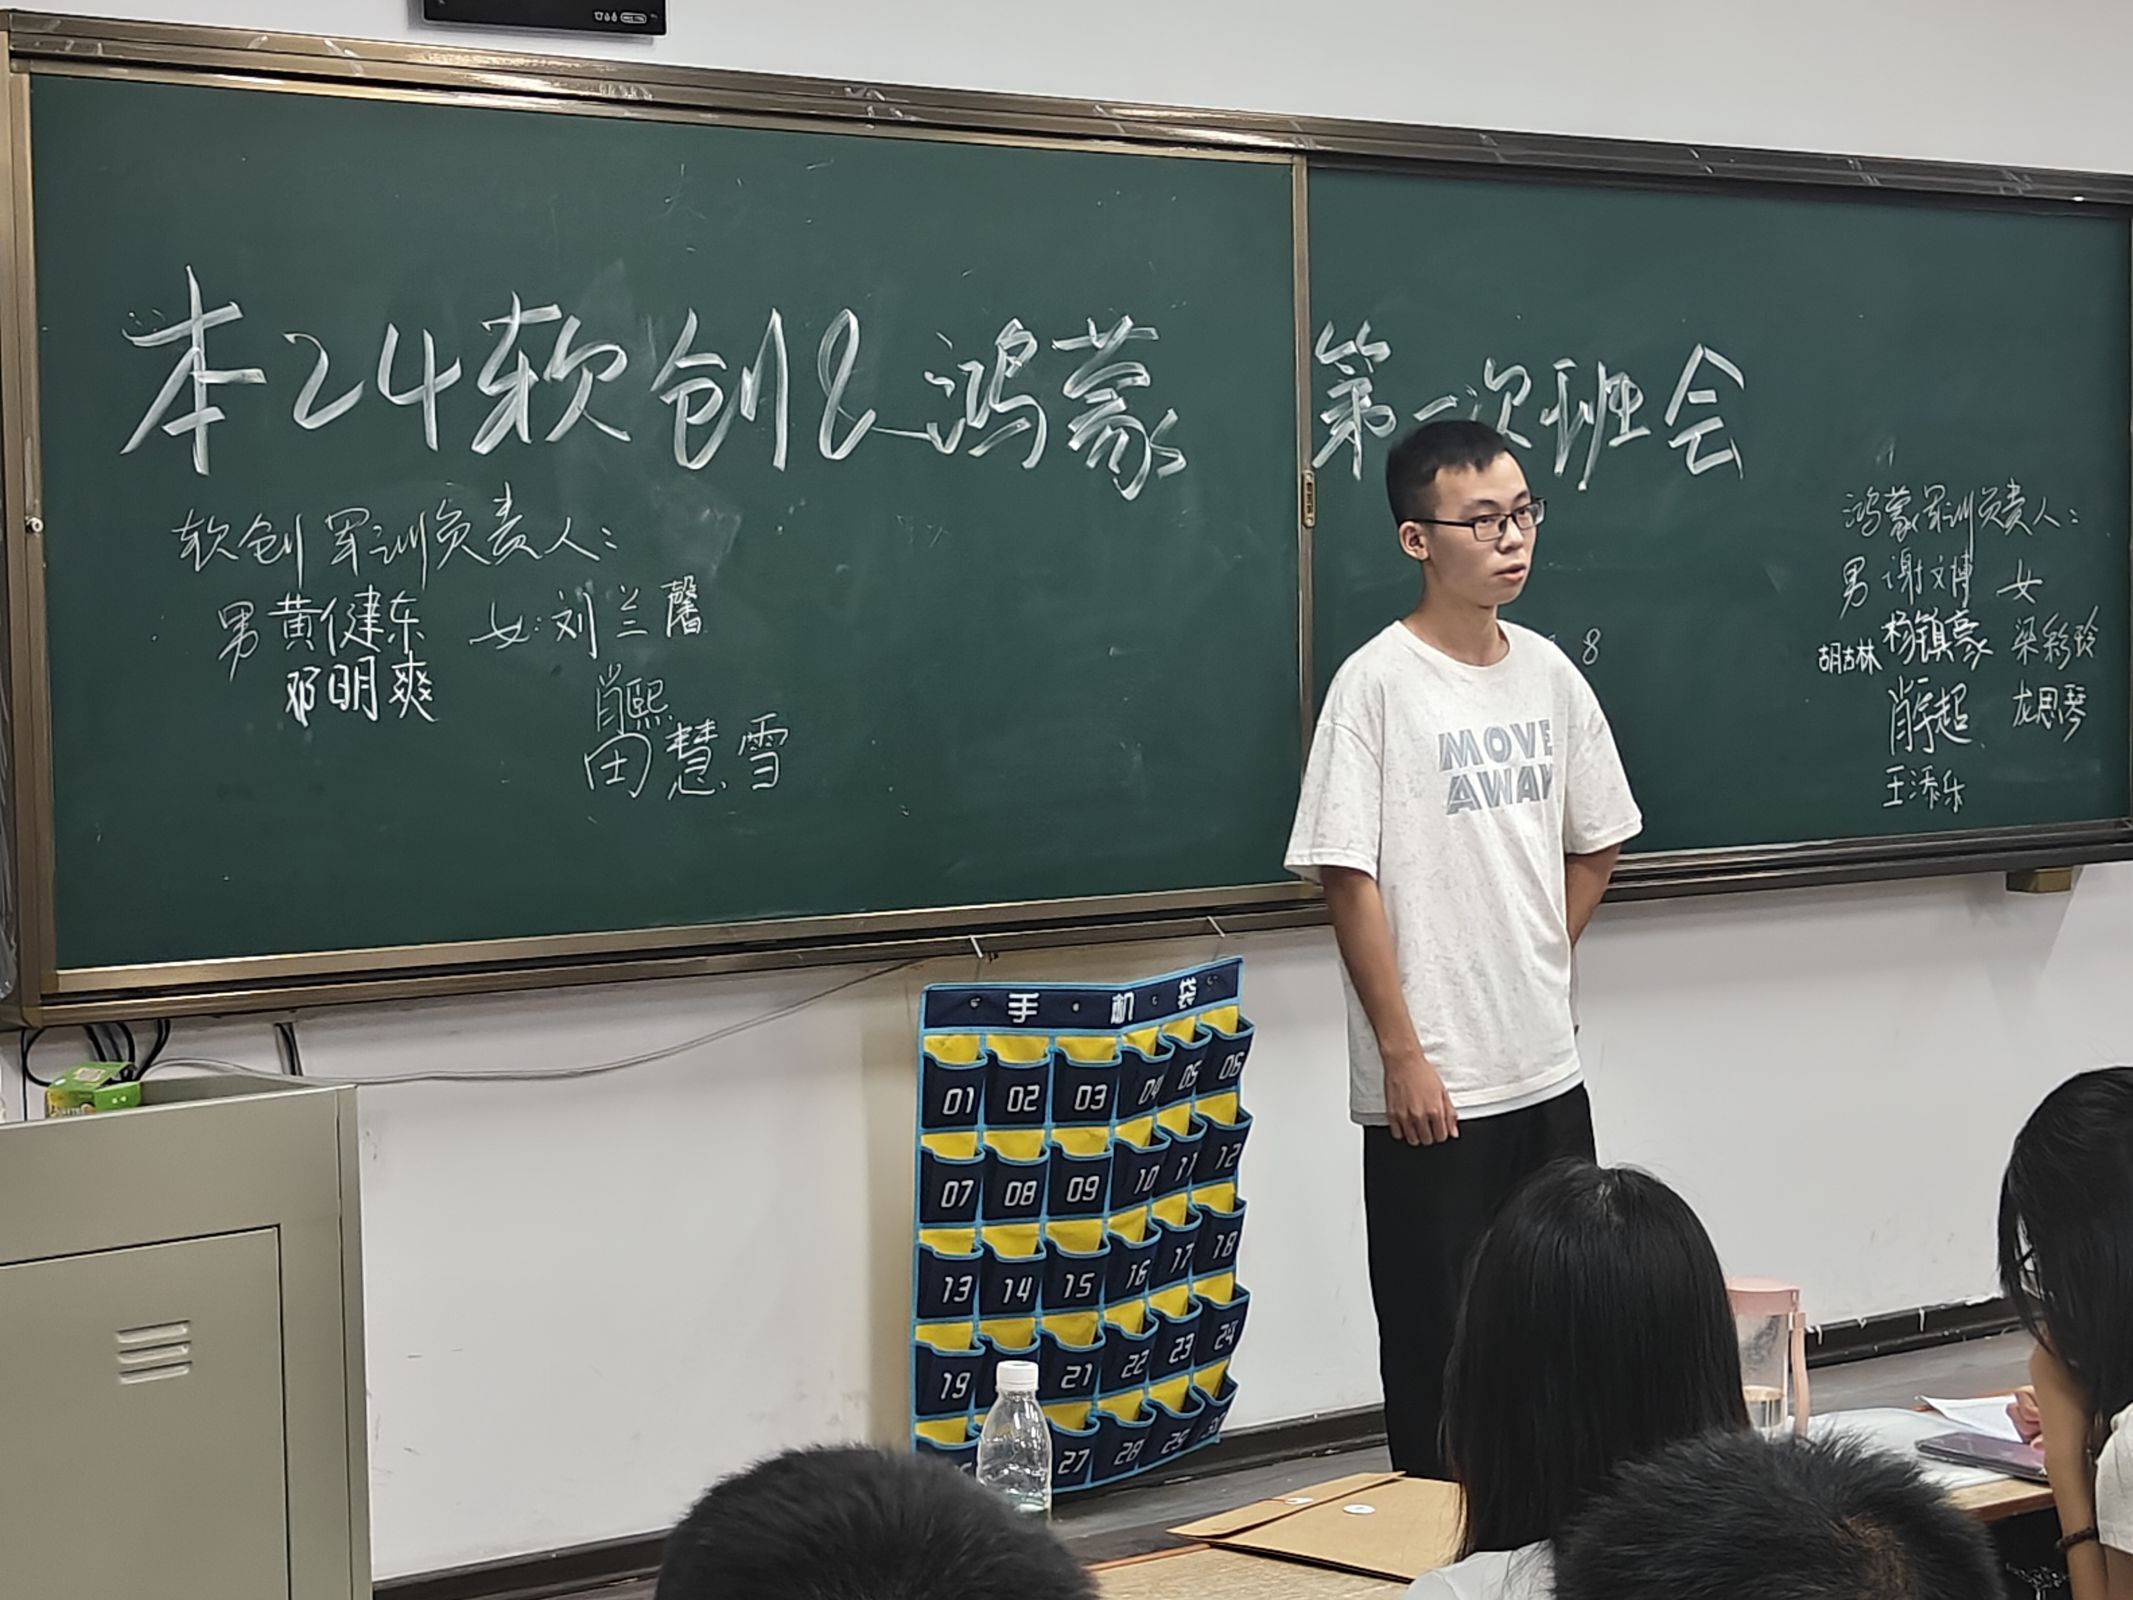 本24软创&鸿蒙 第一次班会
软创军训负责人：
男 黄健东 女：刘兰馨
邓明爽
肖熙
田慧雪
鸿蒙军训负责人：
男 谢文博 女
胡古林 杨镇豪 梁彩玲
肖宇超 龙思琴
王添乐
8
MOVE
AWAY
手机袋
01 02 03 04 05 06
07 08 09 10 11 12
13 14 15 16 17 18
19 21 22 23 24
27 28 29 30